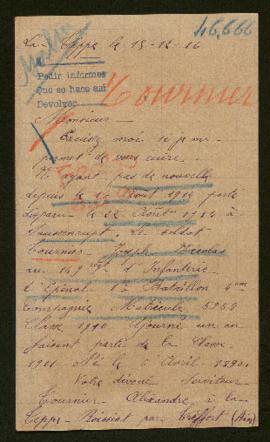 46,666
La Ceppe le 15-12-16
Pedir informes
Que se hace así
Devolver
Tournier
Monsieur
Excusez moi si je me
permet de vous écrire.
N'ayant pas de nouvelle
depuis le Août 1914 porté
disparu le 22 Août 1914 à
Le soldat
Tournier Joseph Nicolas
au 149 Régt d'Infanterie
à Épinal Bataillon 4eme
compagnie Matricule
Classe 1910 ajourné un an
faisant partie de la classe
1911 Né le Avril 1890.
Votre dévoué Serviteur
Tournier Alexandre à la
Ceppe Boissiat par Treffort (Ain)